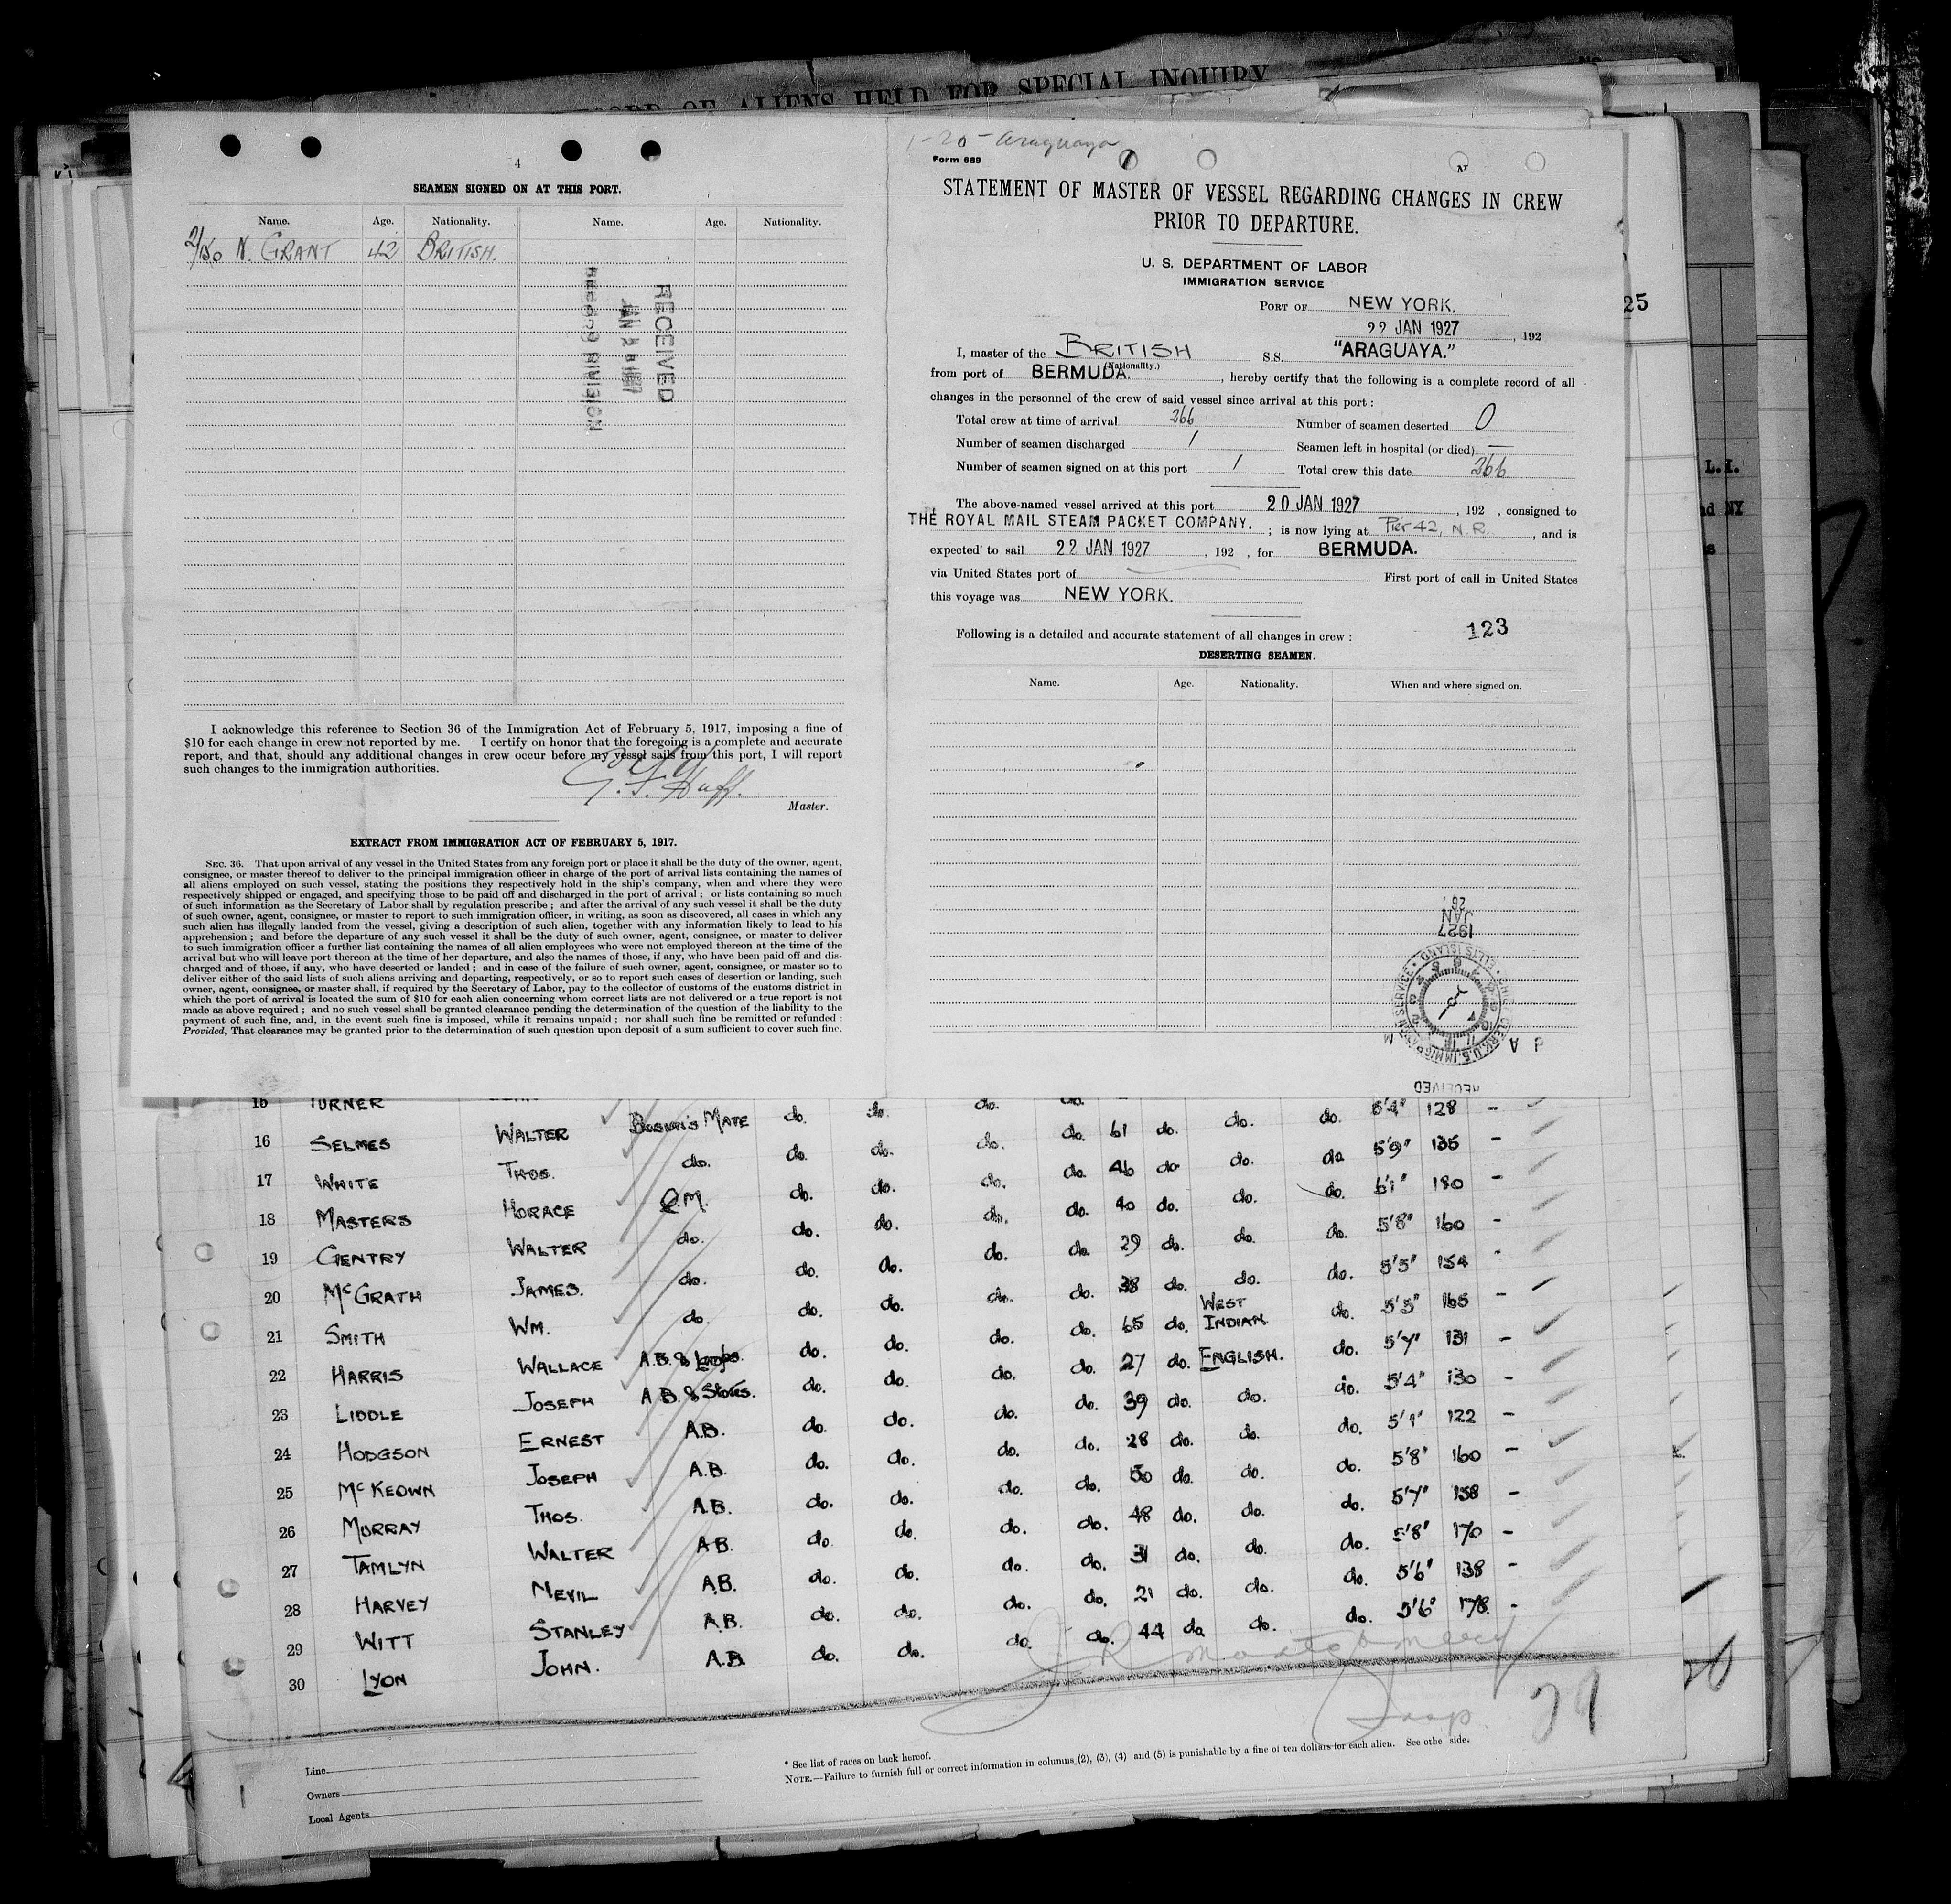 RECORD OF ALIENS HELD FOR SPECIAL INQUIRY
4
SEAMEN SIGNED ON AT THIS PORT.
Name. Age. Nationality. Name. Age. Nationality.
N. GRANT 42 BRITISH.
RECEIVED
JAN 2 1927
RECORD DIVISION
I acknowledge this reference to Section 36 of the Immigration Act of February 5, 1917, imposing a fine of
$10 for each change in crew not reported by me. I certify on honor that the foregoing is a complete and accurate
report, and that, should any additional changes in crew occur before my vessel sails from this port, I will report
such changes to the immigration authorities.
Master.
EXTRACT FROM IMMIGRATION ACT OF FEBRUARY 5, 1917.
SEC. 36. That upon arrival of any vessel in the United States from any foreign port or place it shall be the duty of the owner, agent,
consignee, or master thereof to deliver to the principal immigration officer in charge of the port of arrival lists containing the names of
all aliens employed on such vessel, stating the positions they respectively hold in the ship's company, when and where they were
respectively shipped or engaged, and specifying those to be paid off and discharged in the port of arrival; or lists containing so much
of such information as the Secretary of Labor shall by regulation prescribe; and after the arrival of any such vessel it shall be the duty
of such owner, agent, consignee, or master to report to such immigration officer, in writing, as soon as discovered, all cases in which any
such alien has illegally landed from the vessel, giving a description of such alien, together with any information likely to lead to his
apprehension; and before the departure of any such vessel it shall be the duty of such owner, agent, consignee, or master to deliver
to such immigration officer a further list containing the names of all alien employees who were not employed thereon at the time of the
arrival but who will leave port thereon at the time of her departure, and also the names of those, if any, who have been paid off and dis-
charged and of those, if any, who have deserted or landed; and in case of the failure of such owner, agent, consignee, or master so to
deliver either of the said lists of such aliens arriving and departing, respectively, or so to report such cases of desertion or landing, such
owner, agent, consignee, or master shall, if required by the Secretary of Labor, pay to the collector of customs of the customs district in
which the port of arrival is located the sum of $10 for each alien concerning whom correct lists are not delivered or a true report is not
made as above required; and no such vessel shall be granted clearance pending the determination of the question of the liability to the
payment of such fine, and, in the event such fine is imposed, while it remains unpaid; nor shall such fine be remitted or refunded:
Provided, That clearance may be granted prior to the determination of such question upon deposit of a sum sufficient to cover such fine.
1-20-Araguaya
Form 689
STATEMENT OF MASTER OF VESSEL REGARDING CHANGES IN CREW
PRIOR TO DEPARTURE.
U. S. DEPARTMENT OF LABOR
IMMIGRATION SERVICE
PORT OF NEW YORK.
22 JAN 1927, 192
I, master of the BRITISH S.S. "ARAGUAYA."
(Nationality.)
from port of BERMUDA., hereby certify that the following is a complete record of all
changes in the personnel of the crew of said vessel since arrival at this port:
Total crew at time of arrival 266 Number of seamen deserted 0
Number of seamen discharged 1 Seamen left in hospital (or died) —
Number of seamen signed on at this port 1 Total crew this date 266
The above-named vessel arrived at this port 20 JAN 1927, 192 , consigned to
THE ROYAL MAIL STEAM PACKET COMPANY. ; is now lying at Pier 42, N.R., and is
expected to sail 22 JAN 1927, 192 , for BERMUDA.
via United States port of First port of call in United States
this voyage was NEW YORK.
Following is a detailed and accurate statement of all changes in crew: 123
DESERTING SEAMEN.
Name. Age. Nationality. When and where signed on.
26
JAN
1927
CHIEF CLERK, U.S. IMMIGRATION SERVICE • ELLIS ISLAND •
RECEIVED
25
L.I.
NY
15 TURNER do. do. do. do. 5'4" 128 -
16 SELMES WALTER BOSUN'S MATE do. do. do. do. 61 do. do. do. 5'9" 135 -
17 WHITE THOS. do. do. do. do. do. 46 do. do. do. 6'1" 180 -
18 MASTERS HORACE Q.M. do. do. do. do. 40 do. do. do. 5'8" 160 -
19 GENTRY WALTER do. do. do. do. do. 29 do. do. do. 5'5" 154 -
20 McGRATH JAMES. do. do. do. do. do. 38 do. do. do. 5'5" 165 -
21 SMITH WM. do. do. do. do. do. 65 do. WEST INDIAN. do. 5'7" 131 -
22 HARRIS WALLACE A.B. & Lamps. do. do. do. do. 27 do. ENGLISH. do. 5'4" 130 -
23 LIDDLE JOSEPH A.B. & Stores. do. do. do. do. 39 do. do. do. 5'9" 122 -
24 HODGSON ERNEST A.B. do. do. do. do. 28 do. do. do. 5'8" 160 -
25 McKEOWN JOSEPH A.B. do. do. do. do. 50 do. do. do. 5'7" 158 -
26 MURRAY THOS. A.B. do. do. do. do. 48 do. do. do. 5'8" 170 -
27 TAMLYN WALTER A.B. do. do. do. do. 31 do. do. do. 5'6" 138 -
28 HARVEY NEVIL A.B. do. do. do. do. 21 do. do. do. 5'6" 178 -
29 WITT STANLEY A.B. do. do. do. do. 44 do. do. do.
30 LYON JOHN. A.B. do. do.
29
Line
Owners
Local Agents
* See list of races on back hereof.
NOTE.—Failure to furnish full or correct information in columns (2), (3), (4) and (5) is punishable by a fine of ten dollars for each alien. See othe side.